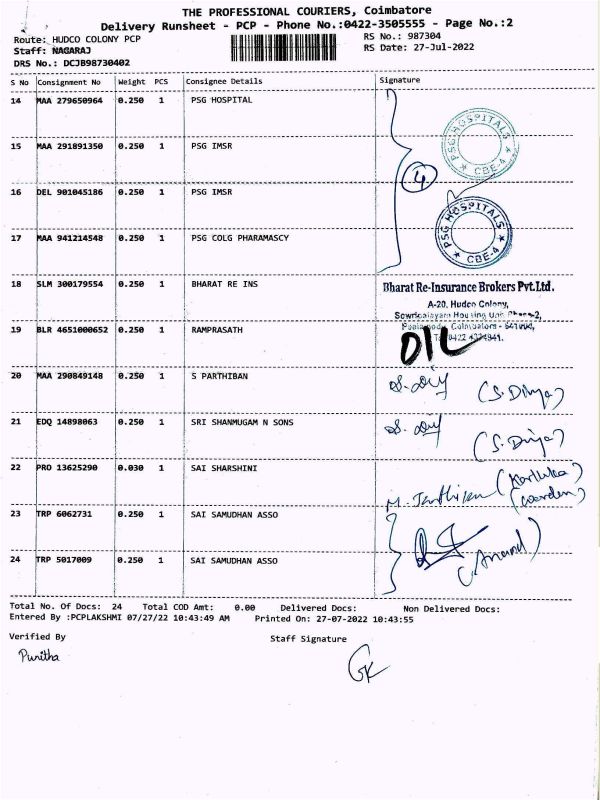 THE PROFESSIONAL COURIERS, Coimbatore
Delivery Runsheet - PCP - Phone No.:0422-3505555 - Page No.:2
Route: HUDCO COLONY PCP RS No.: 987304
Staff: NAGARAJ RS Date: 27-Jul-2022
DRS No.: DCJB98730402
S No Consignment No Weight PCS Consignee Details Signature
14 MAA 279650964 0.250 1 PSG HOSPITAL
PSG HOSPITALS
★ CBE-4 ★
15 MAA 291891350 0.250 1 PSG IMSR
4
16 DEL 901045186 0.250 1 PSG IMSR
PSG HOSPITALS
★ CBE-4 ★
17 MAA 941214548 0.250 1 PSG COLG PHARAMASCY
18 SLM 300179554 0.250 1 BHARAT RE INS Bharat Re-Insurance Brokers Pvt.Ltd.
A-20, Hudco Colony,
Sowripalayam Housing Unit Phase-2,
19 BLR 4651000652 0.250 1 RAMPRASATH
Coimbatore
20 MAA 290849148 0.250 1 S PARTHIBAN
(S. Divya)
21 EDQ 14898063 0.250 1 SRI SHANMUGAM N SONS
(S. Divya)
22 PRO 13625290 0.030 1 SAI SHARSHINI
(warden)
23 TRP 6062731 0.250 1 SAI SAMUDHAN ASSO
(Anand)
24 TRP 5017009 0.250 1 SAI SAMUDHAN ASSO
Total No. Of Docs: 24 Total COD Amt: 0.00 Delivered Docs: Non Delivered Docs:
Entered By :PCPLAKSHMI 07/27/22 10:43:49 AM Printed On: 27-07-2022 10:43:55
Verified By Staff Signature
Punitha GK